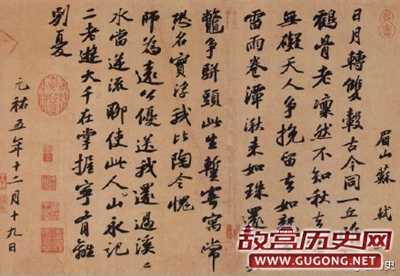 眉山蘇軾
日月轉雙轂古今同一丘
鶴骨老凛然不知秋去
無礙天人爭挽留去如龍
雷雨卷潭湫来如珠還
鼈爭駢頭此生蹔寄寓常
恐名實浮我比陶令愧
師為遠公優送我還過溪〻
水當逆流聊使此人山永記
二老遊大千在掌握寧有離
別憂
元祐五年十二月十九日
故宫历史网
www.GUGONG.NET